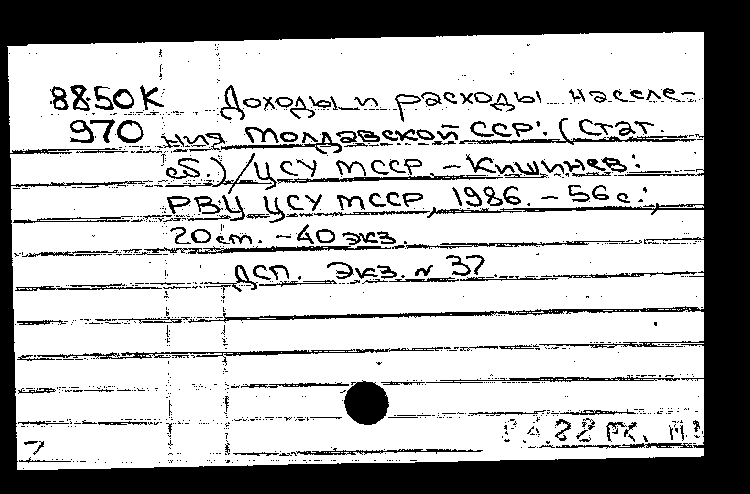 88-50К Доходы и расходы населе-
970 ния Молдавской ССР: (Стат.
сб.) / ЦСУ МССР. – Кишинев:
РВЦ ЦСУ МССР, 1986. – 56 с.;
20 см. – 40 экз.
ДСП. Экз. № 37.